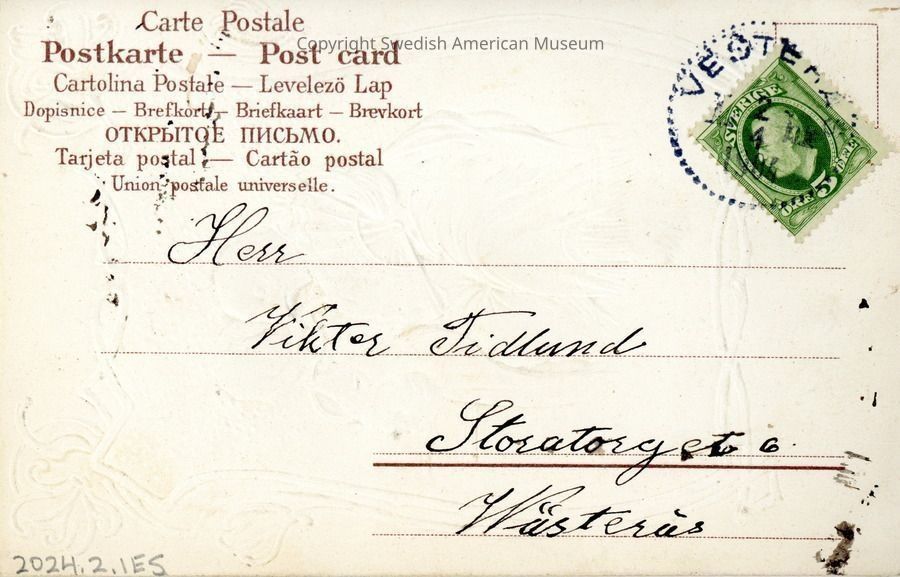 Carte Postale
Postkarte — Post card
Copyright Swedish American Museum
Cartolina Postale — Levelező Lap
Dopisnice — Brefkort — Briefkaart — Brevkort
ОТКРЫТОЕ ПИСЬМО.
Tarjeta postal — Cartão postal
Union postale universelle.
VESTER
SVERIGE
ÖRE 5 ÖRE
Herr
Vikter Tidlund
Storatorget 6
Wästerås
2024.2.1ES